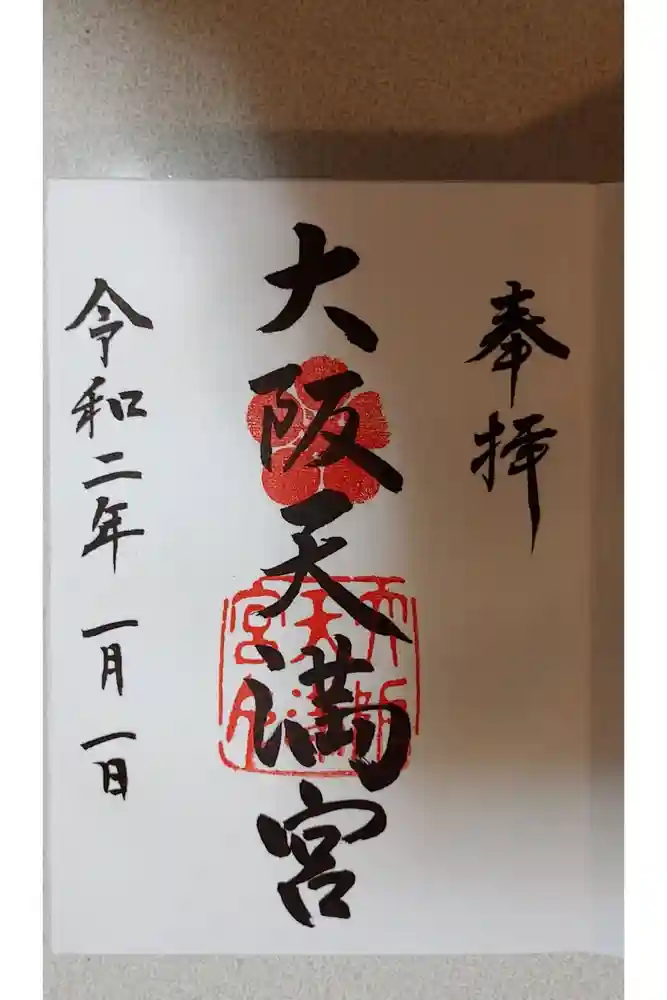 奉拝
大阪天満宮
令和二年一月一日